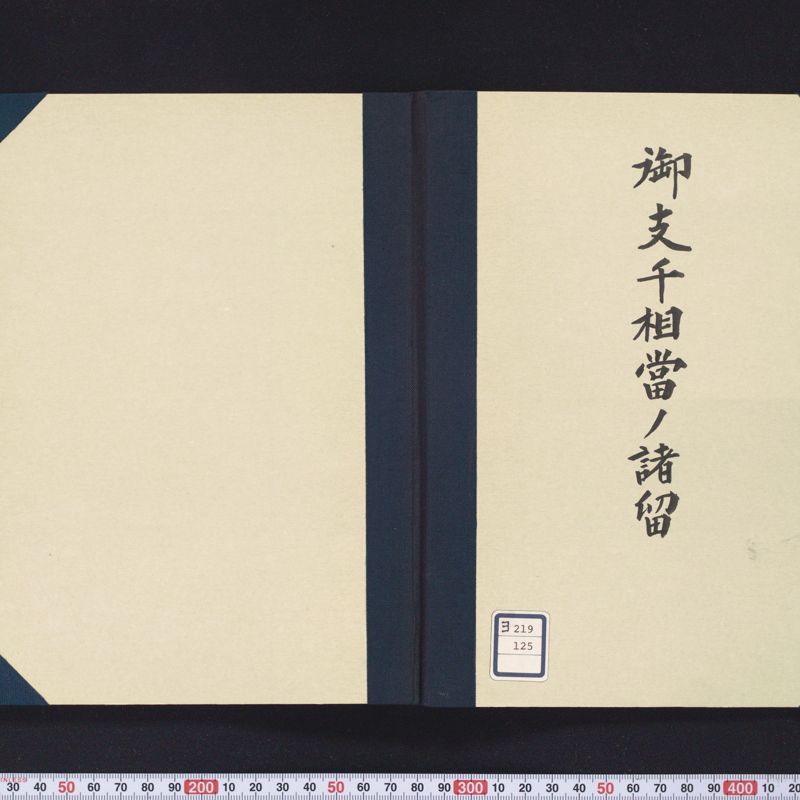 御支千相當ノ諸留
ヨ 219
125
30 40 50 60 70 80 90 200 10 20 30 40 50 60 70 80 90 300 10 20 30 40 50 60 70 80 90 400 10 20